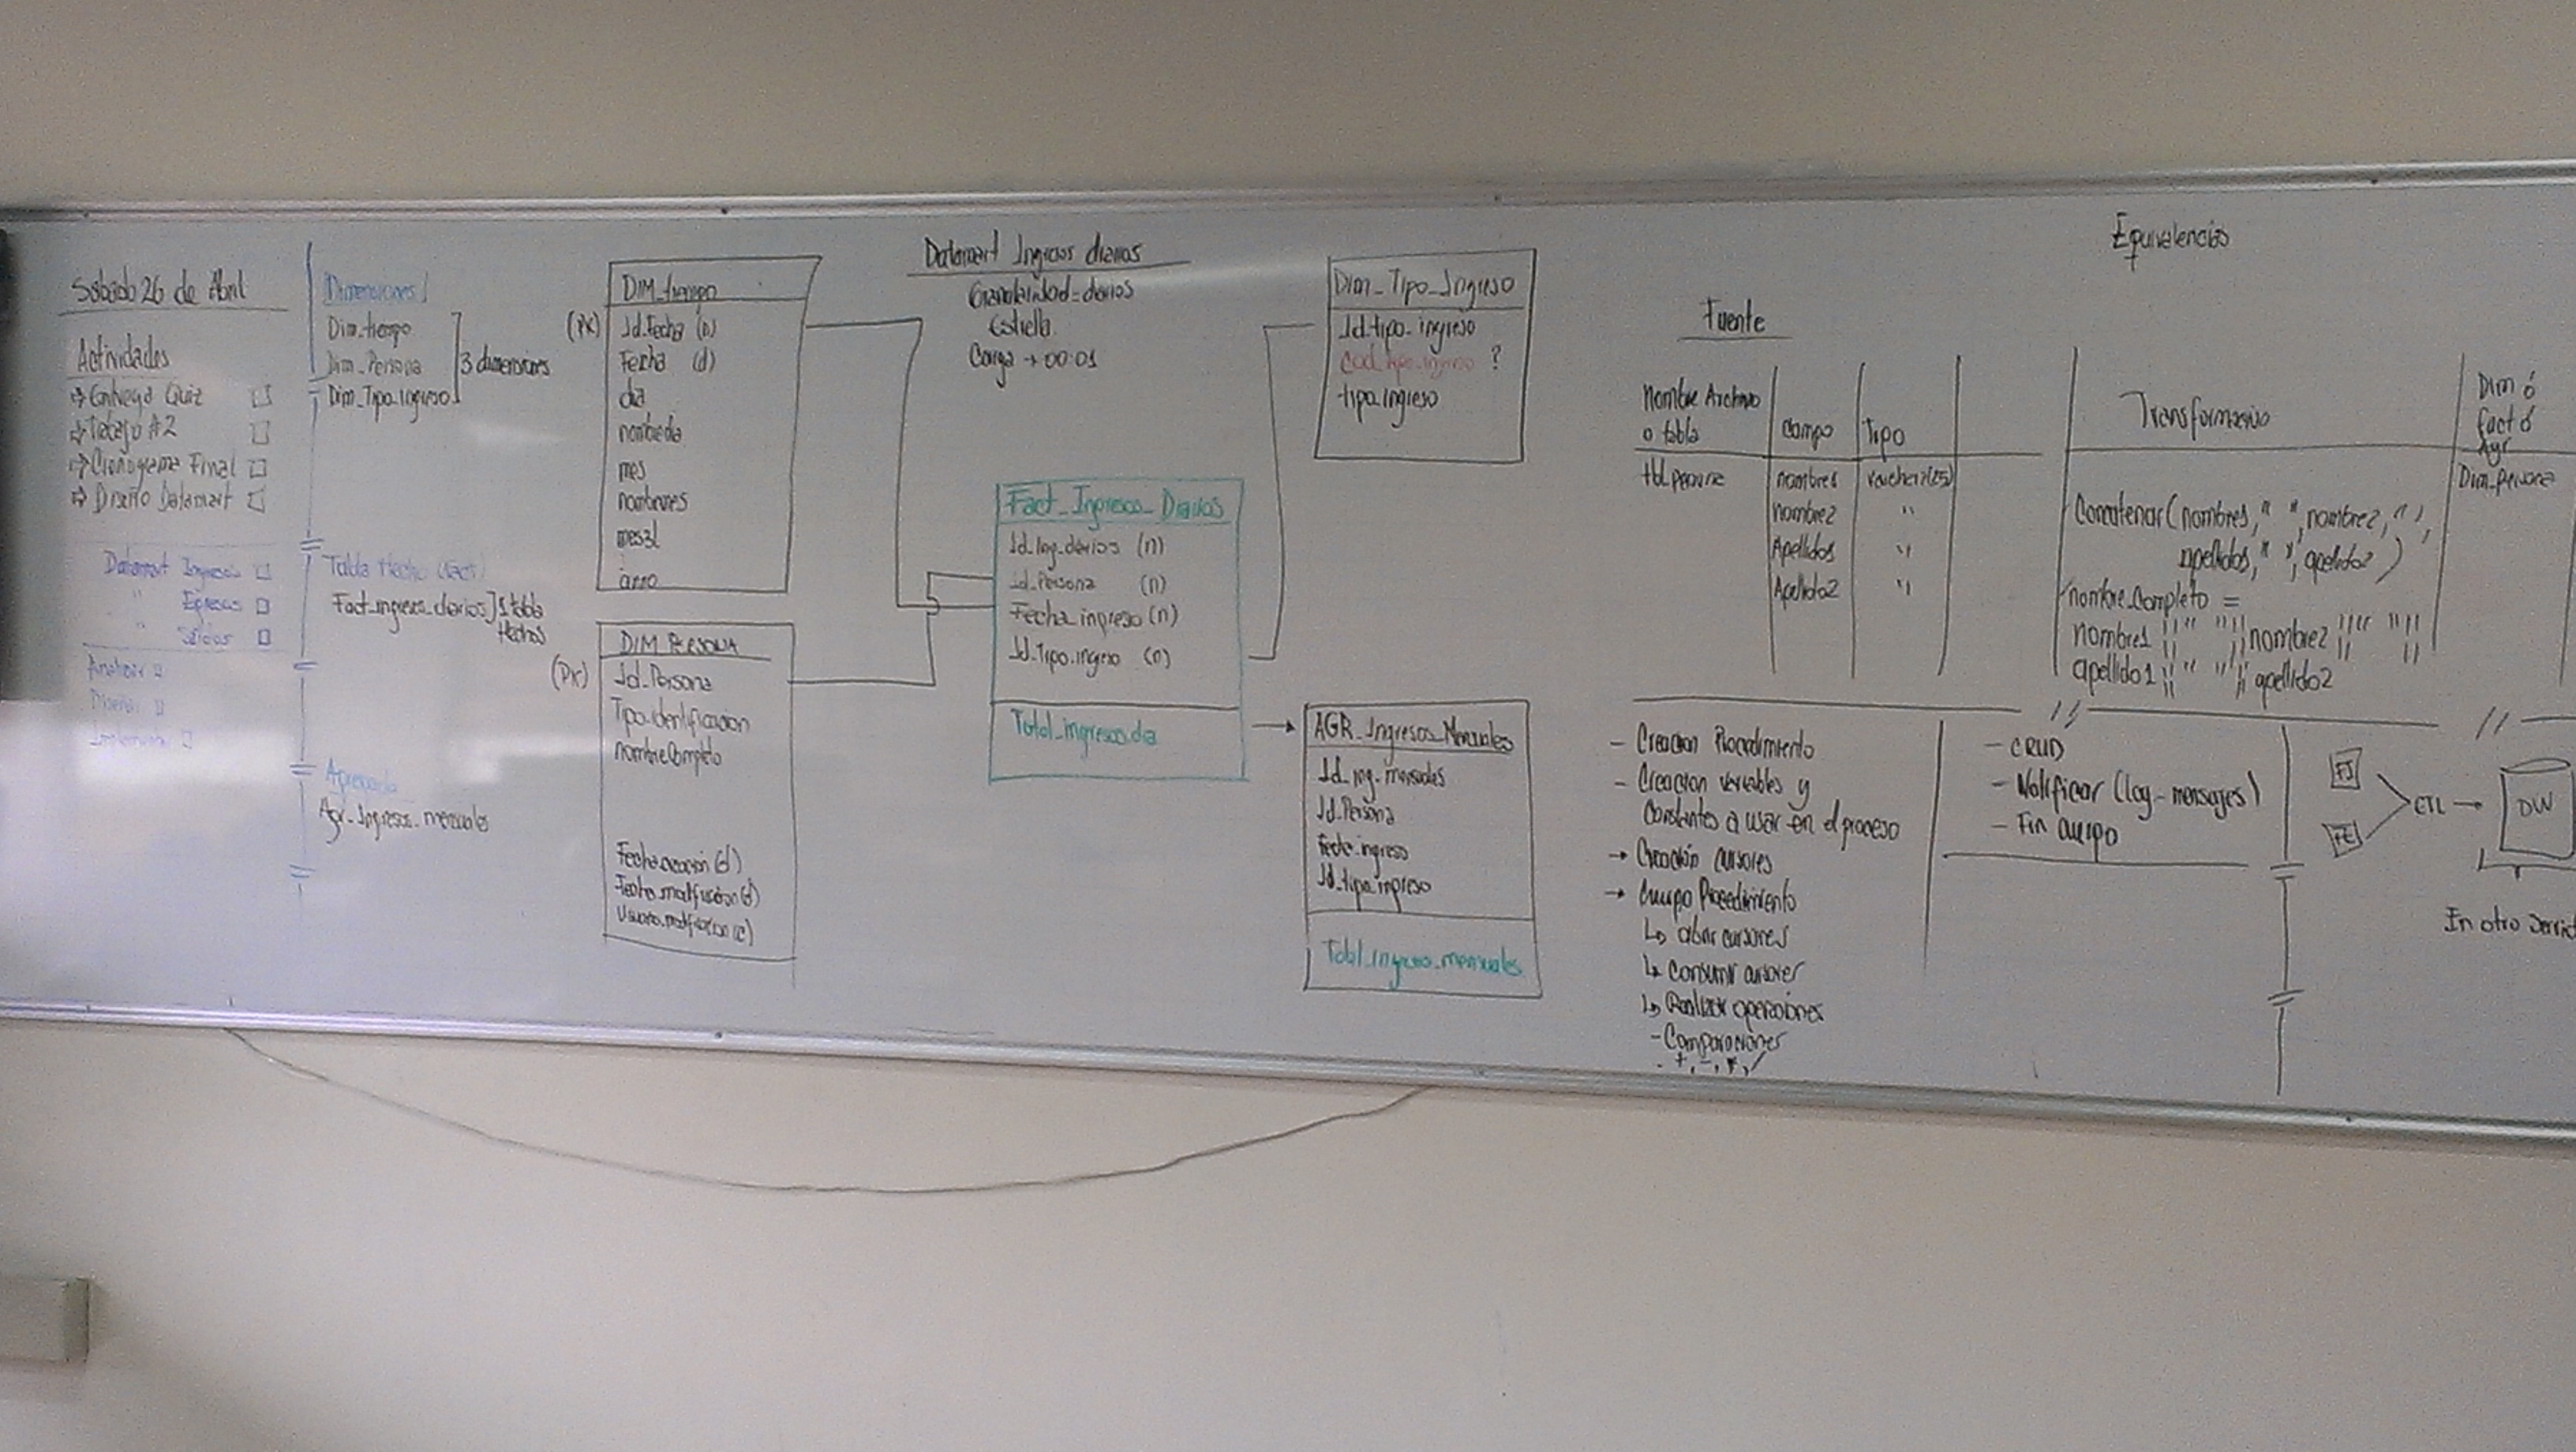 Sábado 26 de Abril
Actividades
⇒ Entrega Quiz □
⇒ Trabajo #2 □
⇒ Cronograma Final □
⇒ Diseño Datamart □
Datamart Ingresos □
" Egresos □
" Salidas □
Analizar □
Diseñar □
Implementar □
Dimensiones
Dim_tiempo
Dim_Persona
Dim_Tipo_Ingreso
3 dimensiones
Tabla Hecho (fact)
Fact_ingresos_diarios] 1 tabla
Hechos
Agregado
Agr_Ingresos_mensuales
DIM_tiempo
(PK) Id_Fecha (n)
Fecha (d)
dia
nombredia
mes
nombremes
mes3l
:
anno
DIM_PERSONA
(PK) Id_Persona
Tipo_identificacion
nombreCompleto
Fecha_creación (d)
Fecha_modificación (d)
Usuario_modificacion (c)
Datamart Ingresos diarios
Granularidad = diarios
Estrella
Carga → 00:01
Fact_Ingresos_Diarios
Id_Ing_diarios (n)
id_Persona (n)
Fecha_ingreso (n)
Id_Tipo_ingreso (n)
Total_ingresos_dia
Dim_Tipo_Ingreso
Id_tipo_ingreso
Cod_tipo_ingreso ?
tipo_ingreso
AGR_Ingresos_Mensuales
Id_ing_mensuales
Id_Persona
fecha_ingreso
Id_tipo_ingreso
Total_ingresos_mensuales
Equivalencias
Fuente
Nombre Archivo
o tabla
Campo
Tipo
Transformación
Dim ó
fact ó
Agr
tbl_persona
nombre1
varchar2(25)
nombre2 "
Apellido1 "
Apellido2 "
Dim_persona
Concatenar(nombre1," ",nombre2," ",
apellido1," ",apellido2)
nombre_Completo =
nombre1 ||" "|| nombre2 ||" "||
apellido1 ||" "|| apellido2
- Creacion Procedimiento
- Creacion variables y
Constantes a usar en el proceso
→ Creación cursores
→ Cuerpo Procedimiento
↳ abrir cursores
↳ Consumir cursores
↳ Realizar operaciones
- Comparaciones
- +, -, *, /
- CRUD
- Notificar (log_mensajes)
- Fin cuerpo
ETL → DW
En otro